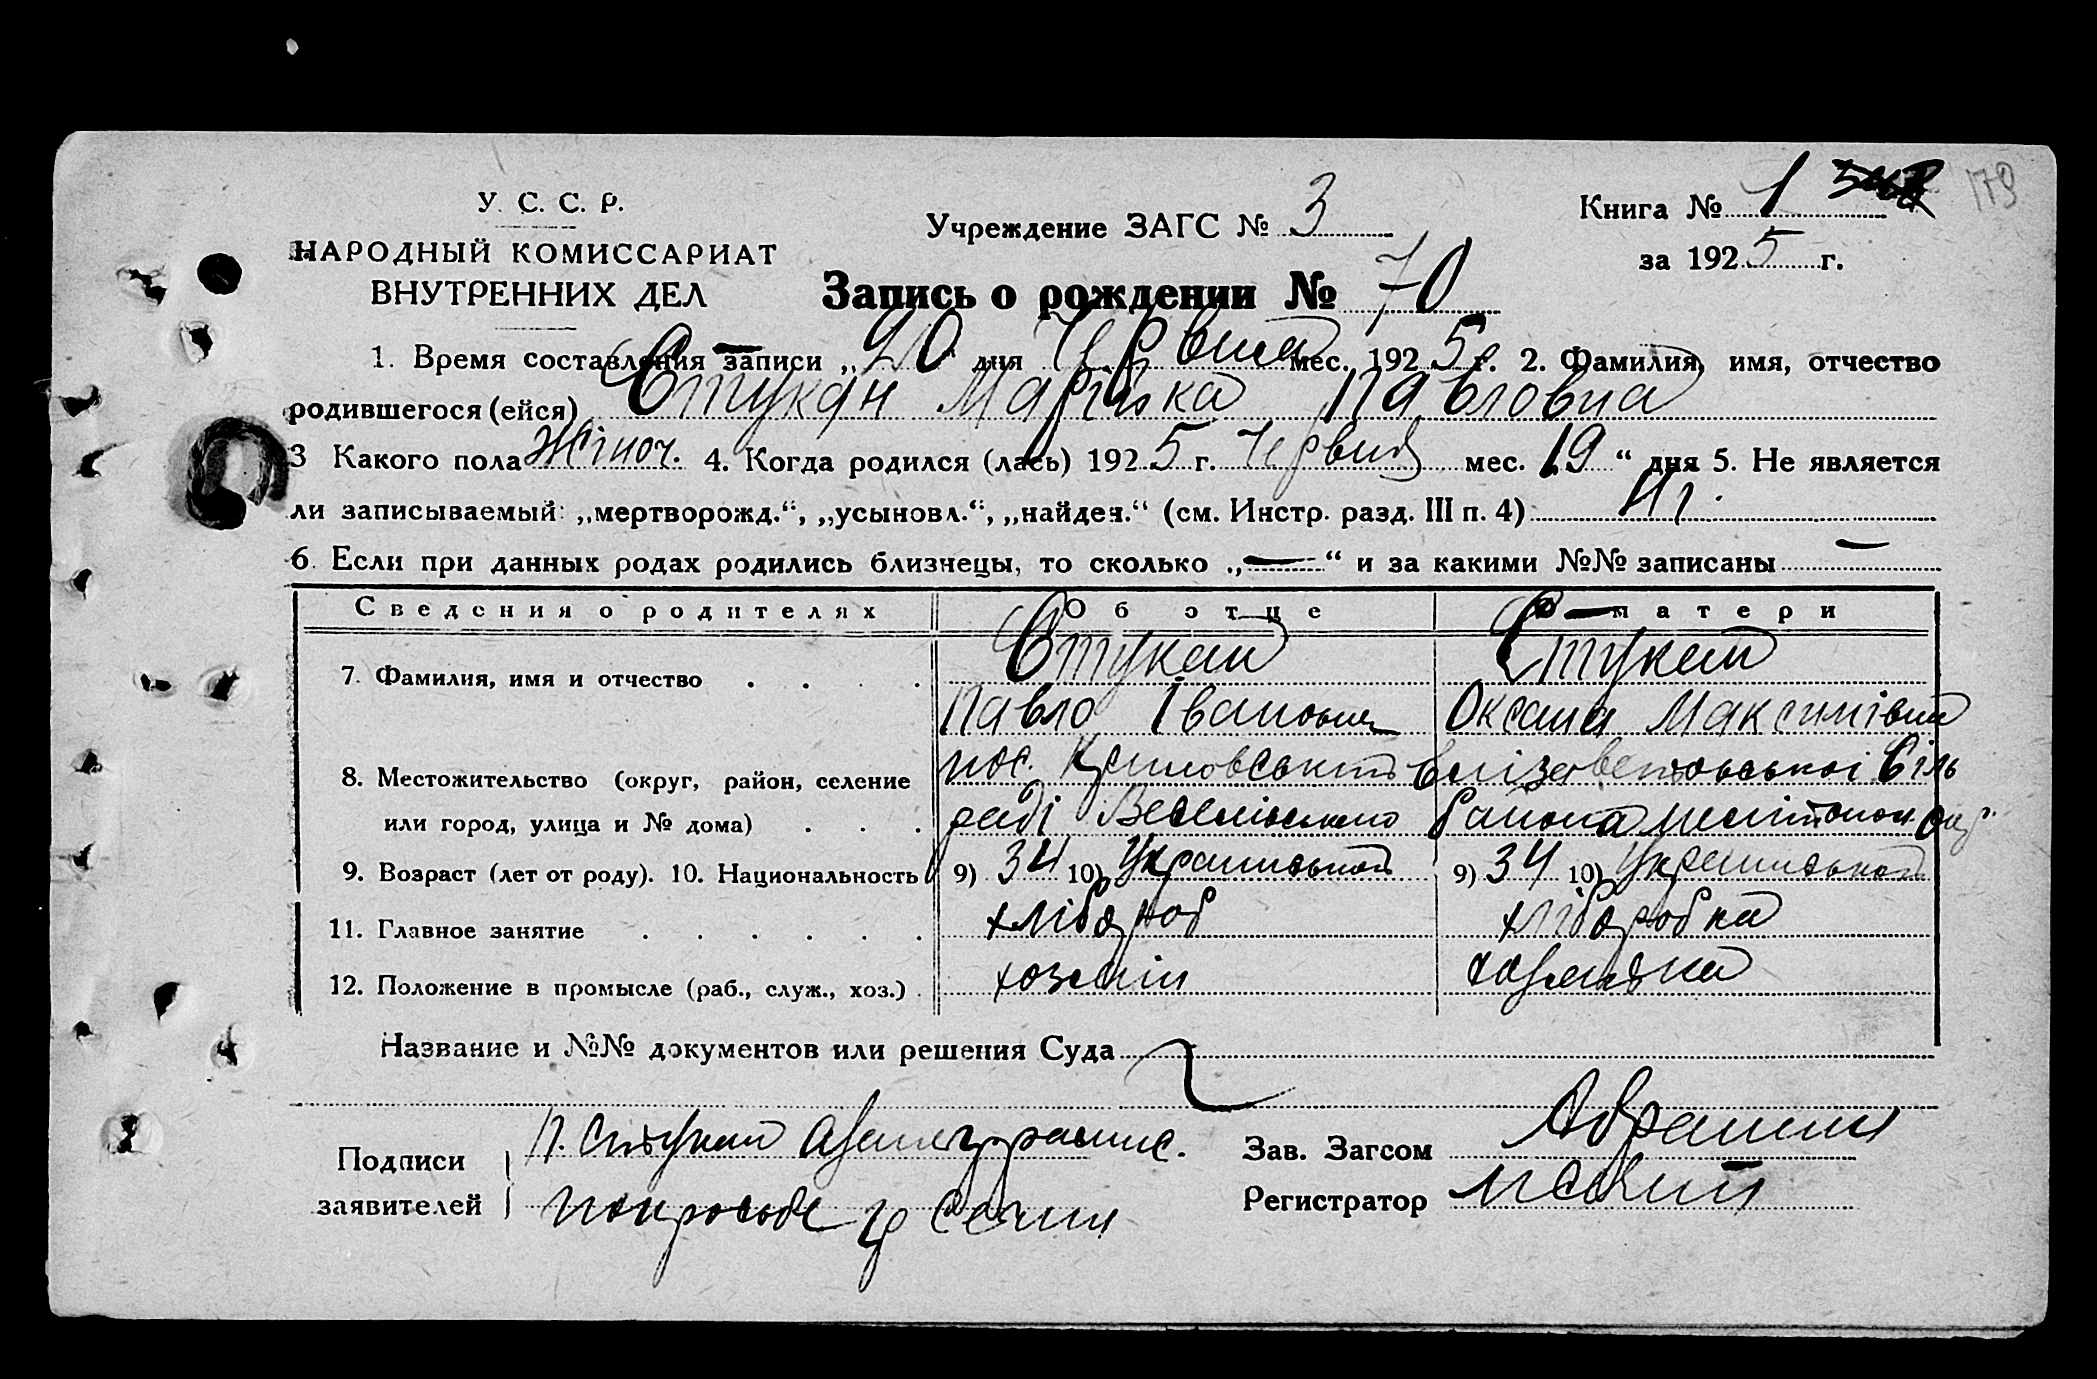 179
У. С. С. Р.
НАРОДНЫЙ КОМИССАРИАТ
ВНУТРЕННИХ ДЕЛ
Учреждение ЗАГС № 3
Книга № 1
за 1925 г.
Запись о рождении № 70
1. Время составления записи „20“ дня Червня мес. 1925 г. 2. Фамилия, имя, отчество
родившегося (ейся) Стукан Марійка Павловна
3 Какого пола Жіноч. 4. Когда родился (лась) 1925 г. Червня мес. 19 “ дня 5. Не является
ли записываемый: „мертворожд.“, „усыновл.“, „найден.“ (см. Инстр. разд. III п. 4) Ні.
6. Если при данных родах родились близнецы, то сколько „—“ и за какими №№ записаны —
Сведения о родителях Об отце О матери
7. Фамилия, имя и отчество . . . . Стукан Стукан
Павло Іванович Оксана Максимівна
8. Местожительство (округ, район, селение пос. Єлізаветовської Сіль
или город, улица и № дома) . . . раді Веселівського района Мелітопол. Окр.
9. Возраст (лет от роду). 10. Национальность 9) 34 10) Українськой 9) 34 10) Українськой
11. Главное занятие . . . . . . хлібороб хліборобка
12. Положение в промысле (раб., служ., хоз.) . хозяін хозяйка
Название и №№ документов или решения Суда
Подписи заявителей П. Стукан
Зав. Загсом
Регистратор